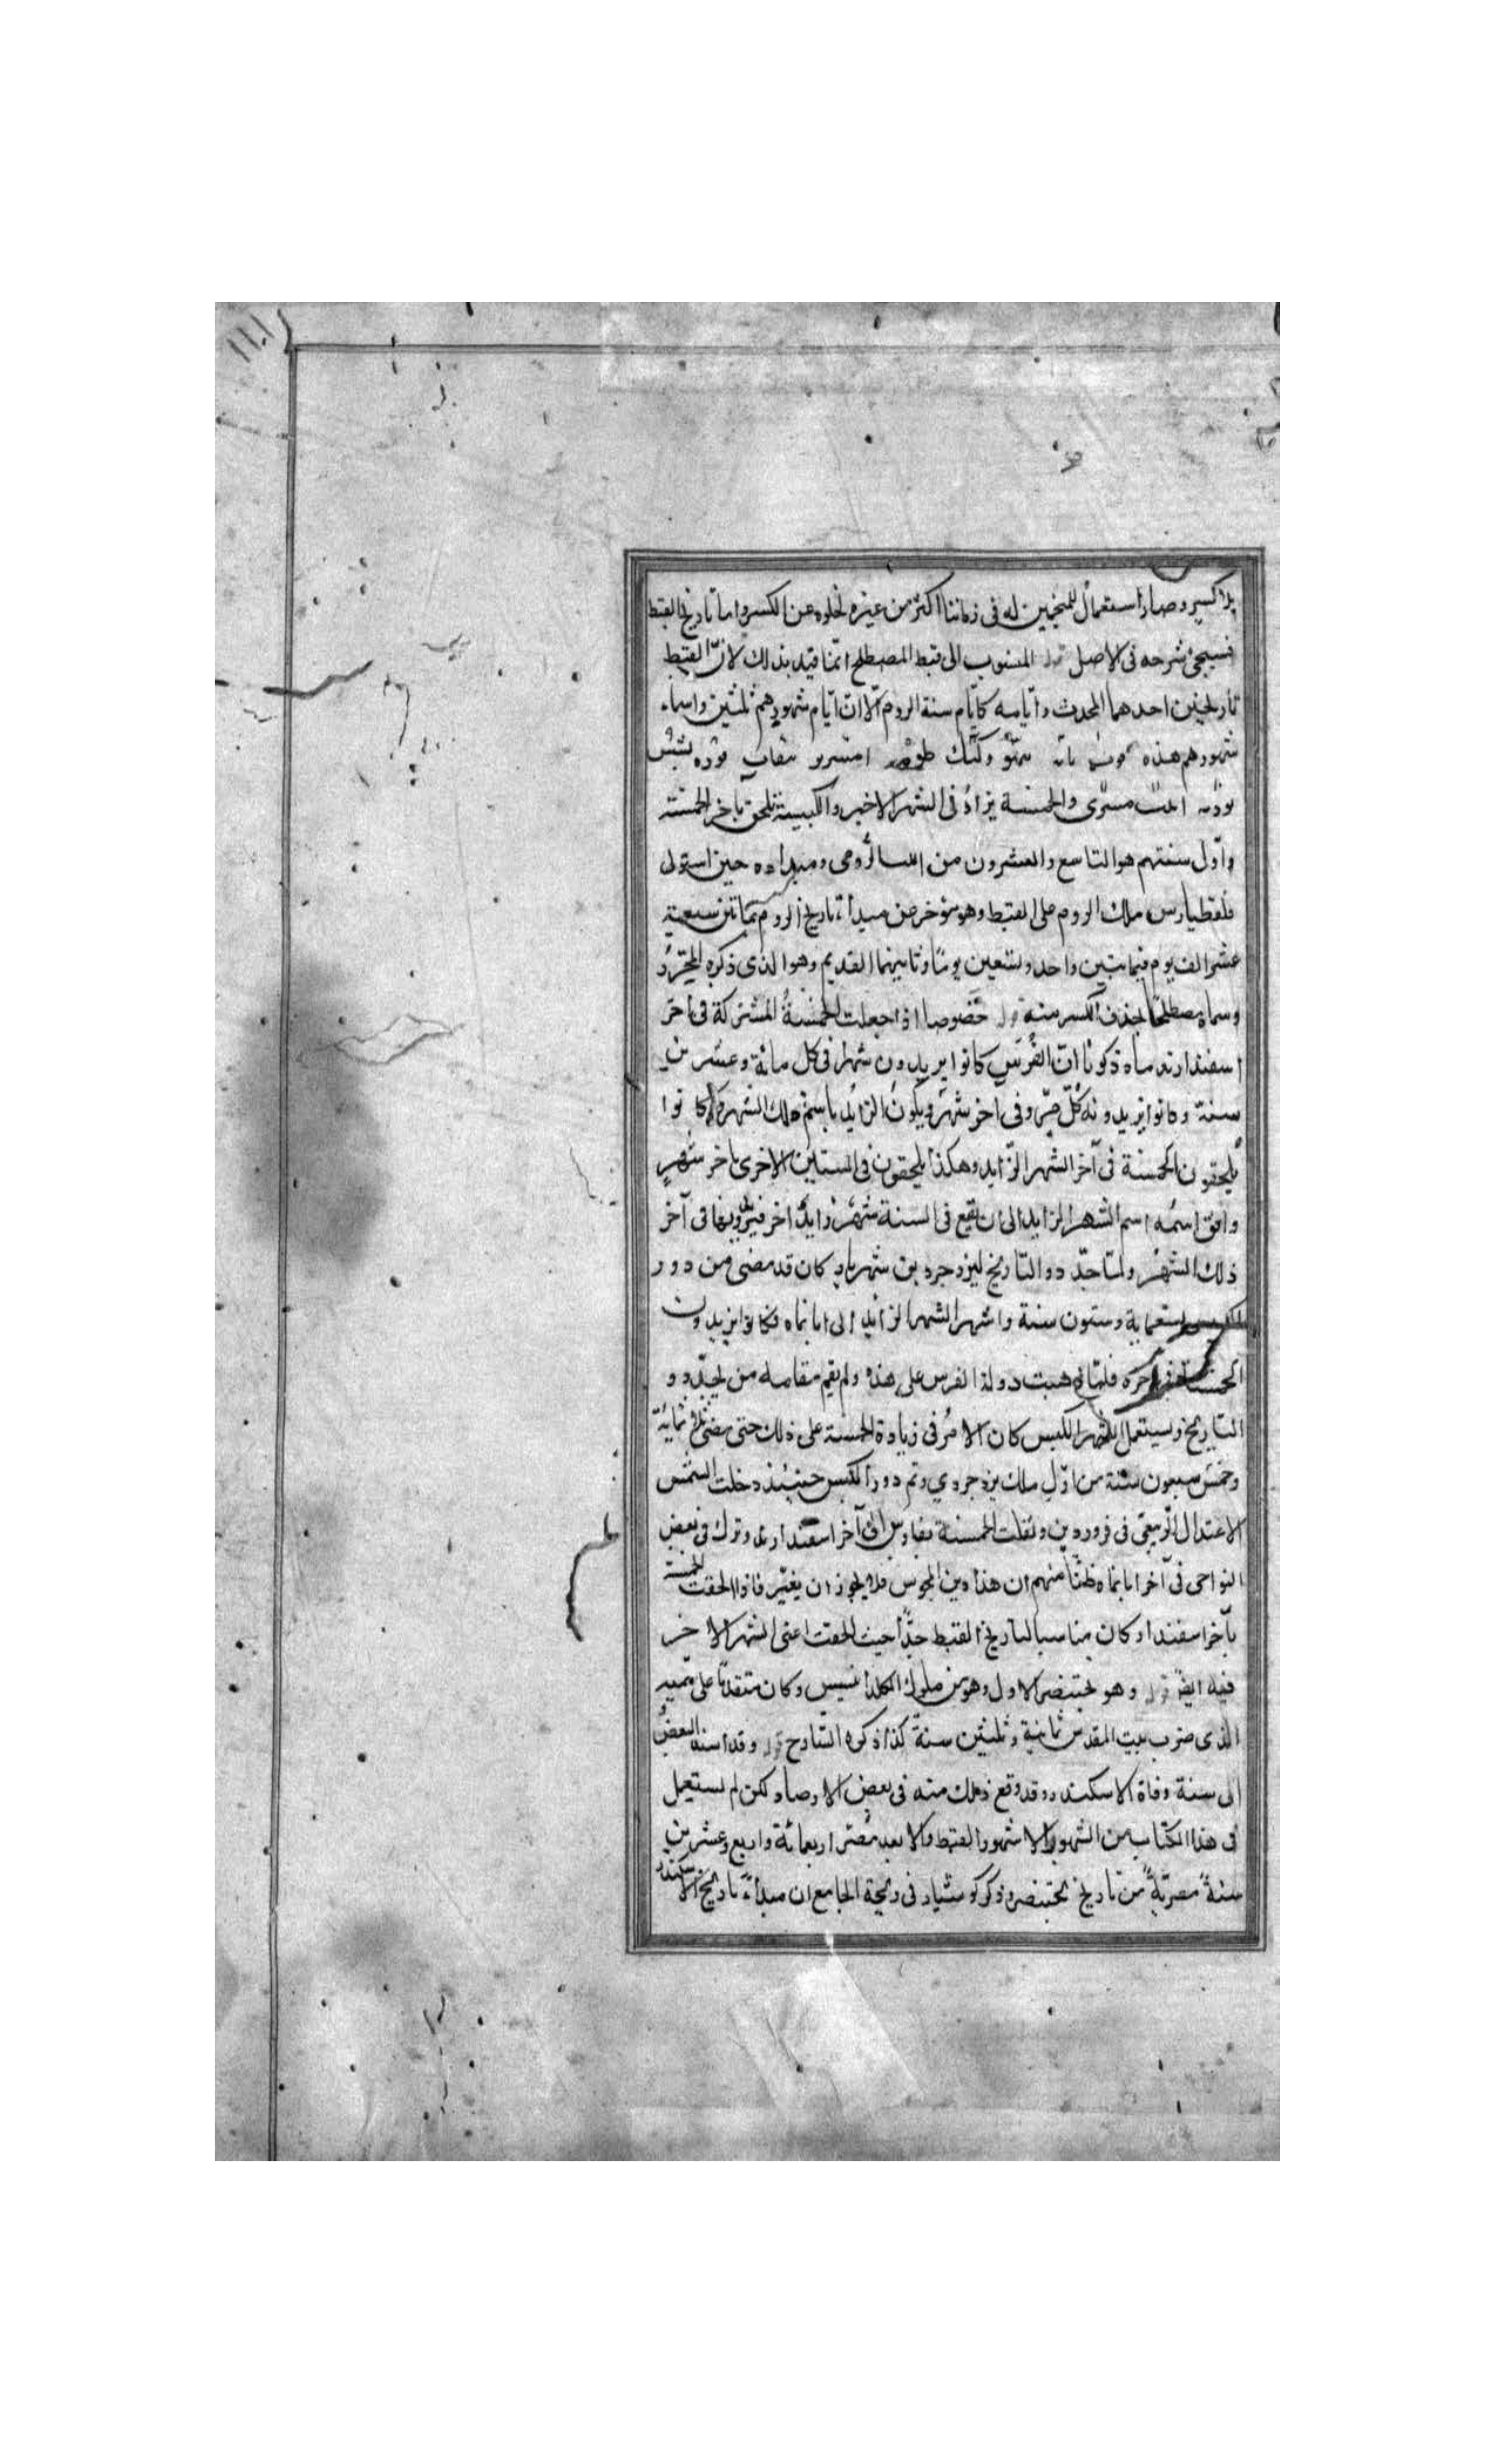 بلا كسر وصار استعمال المنجمين له فى زماننا اكثر من غيره لخلوه عن الكسر واما تاريخ القبط
فسيجئ شرحه فى الاصل قوله المنسوب الى قبط المصطلح انما قيد بذلك لانّ القبط
تاريخين احدهما المحدث وايامه كايّام سنة الروم الّا انّ ايّام شهورهم ثلثين واسماء
شهورهم هذه توت بابه هتو وكيك طوبه امشير
بؤنه ابيب مسرى والخمسة يزاد فى الشهر الاخير والكبيسة تلحق بآخر الخمسة
واوّل سنتهم هو التاسع والعشرون من اب الرومى ومبداءه حين استولى
فلقطيارس ملك الروم على القبط وهو مؤخر عن مبدأ تاريخ الروم بمائتين سبعة
عشر الف يوم فيمابتين واحد وتسعين يومًا وثانيهما القديم وهو الذى ذكره المحرّر
وسماه مصطلحًا بحذف الكسر منه قوله خصوصا اذا جعلت الخمسةُ المشتركة فى آخر
اسفندارند ماه ذكرنا انّ الفُرس كانوا يزيدون شهرا فى كل مائة وعشرين
سنة وكانوا يزيدونه كلّ مرّة فى آخر شهر ويكون الزايد باسم ذلك الشهر وكانوا
يلحقون الخمسة فى آخر الشهر الزايد وهكذا يلحقون فى السنين الاخرى باخر شهرٍ
وافق اسمُه اسم الشهر الزايد الى ان يقع فى السنة شهر زايد آخر فيزيدونها فى آخر
ذلك الشهر ولمّا جدّدوا التاريخ ليزدجرد بن شهريار كان قد مضى من دور
الكبيس تسعماية وستون سنة واشهر الشهر الزايد الى ابانماه فكانوا يزيدون
الخمسة فى آخره فلمّا ذهبت دولة الفرس على هذه ولم يقم مقامه من يجدّدوا
التاريخ ويستعمل الشهر الكبس كان الامر فى زيادة الخمسة على ذلك حتى مضى ثلاثمائة
وخمس سبعون سنة من اوّل ملك يزدجردي وتم دور الكبس حينئذ دخلت الشمس
الاعتدال الرّبيعى فى فروردين ونقلت الخمسة بفارس الى آخر اسفندارند وترك فى بعض
النواحى فى آخر ابانماه ظنّا منهم ان هذا دين المجوس فلا يجوز ان يغيّر فاذا الحقت الخمسة
بآخر اسفندار كان مناسبا لتاريخ القبط جدًّا حيث لحقت اعنى الشهر الاخر
فيه ايضً قوله وهو بختنصر الاول وهو من ملوك الكلدانيين وكان متقدمًا على سميه
الذى ضرب بيت المقدس ثمانية وثلثين سنة كذا ذكره الشارح قوله وقد اسند البعض
الى سنة وفاة الاسكندر وقد وقع ذلك منه فى بعض الارصاد لكن لم يستعمل
فى هذا الكتاب من الشهور الا شهور القبط والا بعد مضى اربعمائة واربع وعشرين
سنةً مصريّةً من تاريخ بختنصر وذكر كوشيار فى زيجه الجامع ان مبداء تاريخ الاسكندر